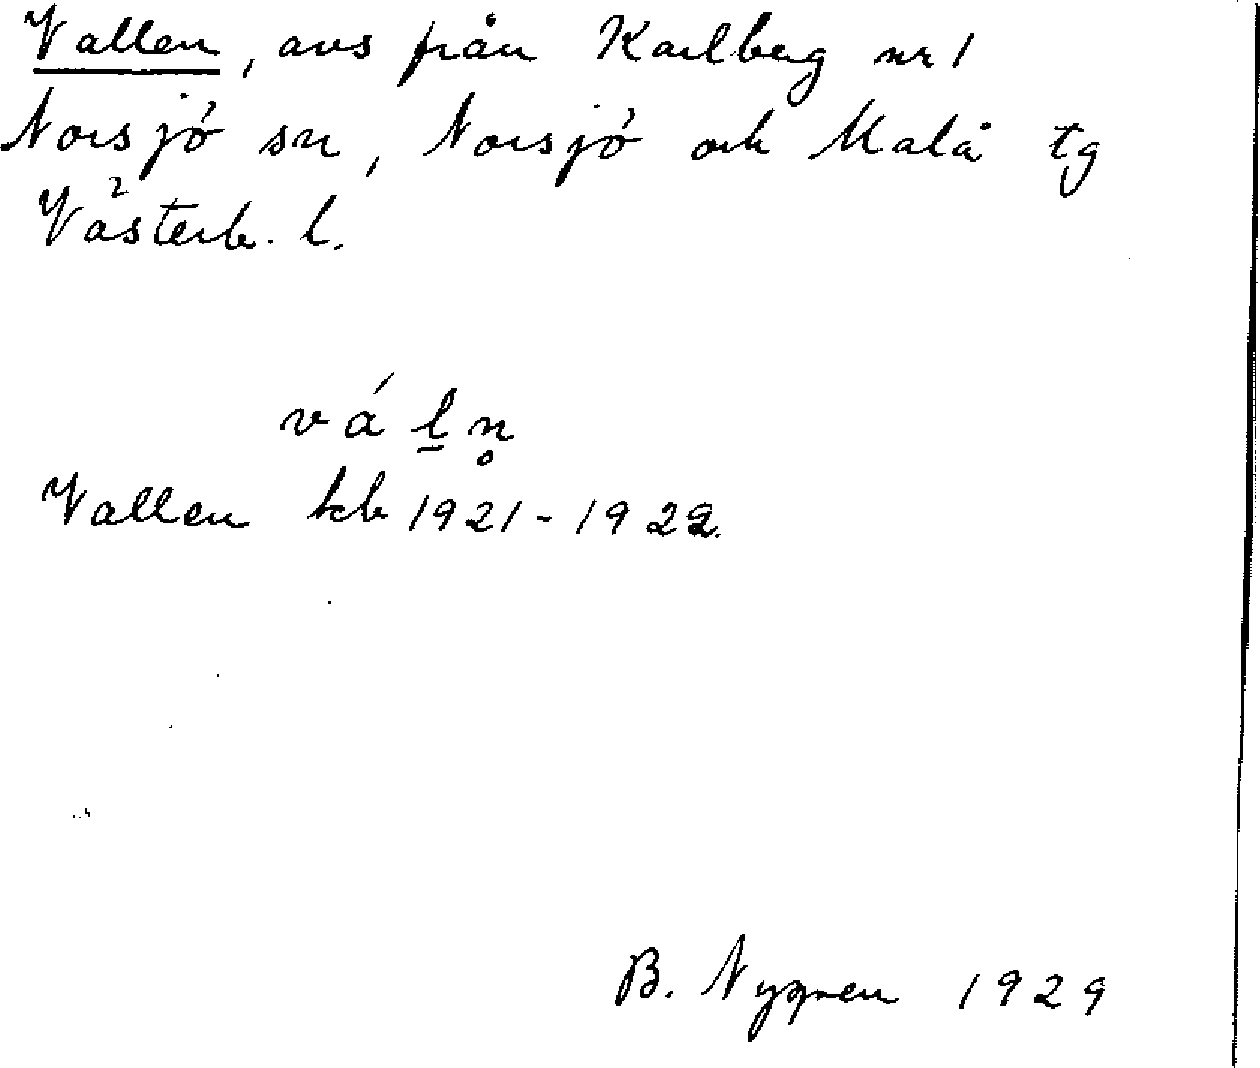 Vallen, avs från Karlberg nr 1
Norsjö sn, Norsjö och Malå tg
Västerb. l.
vá l̲n̥
Vallen kb 1921-1922.
B. Nygren 1929